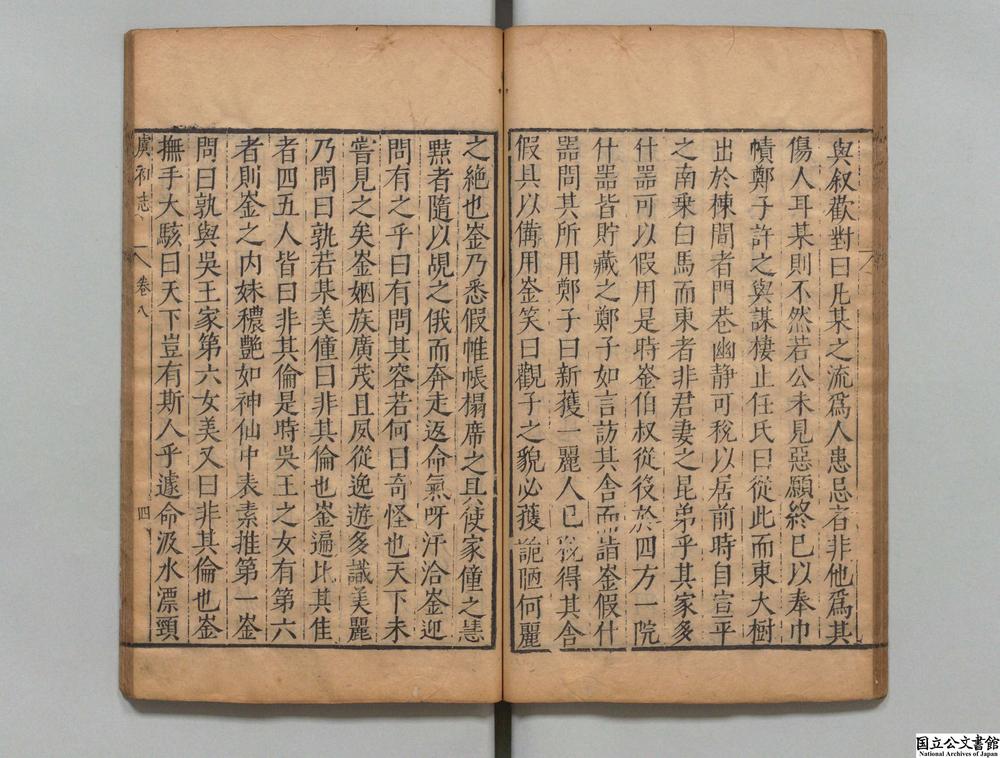 與叙歡對曰凡某之流爲人患忌者非他爲其
傷人耳某則不然若公未見惡願終已以奉巾
幘鄭子許之與謀棲止任氏曰從此而東大樹
出於棟間者門巷幽静可稅以居前時自宣平
之南乗白馬而東者非君妻之昆弟乎其家多
什噐可以假用是時崟伯叔從役於四方一院
什噐皆貯藏之鄭子如言訪其舎而詣崟假什
噐問其所用鄭子曰新獲一麗人已稅得其舎
假具以備用崟笑曰觀子之貌必獲詭陋何麗
之絶也崟乃悉假帷帳榻席之具使家僮之慧
黠者隨以覘之俄而奔走返命氣吁汗洽崟迎
問有之乎曰有問其容若何曰竒怪也天下未
嘗見之矣崟姻族廣茂且夙從逸遊多識美麗
乃問曰孰若某美僮曰非其倫也崟遍比其佳
者四五人皆曰非其倫是時吳王之女有第六
者則崟之内妹穠艷如神仙中表素推第一崟
問曰孰與吳王家第六女美又曰非其倫也崟
撫手大駭曰天下豈有斯人乎遽命汲水漂頸
虞初志 卷八 四
国立公文書館
National Archives of Japan